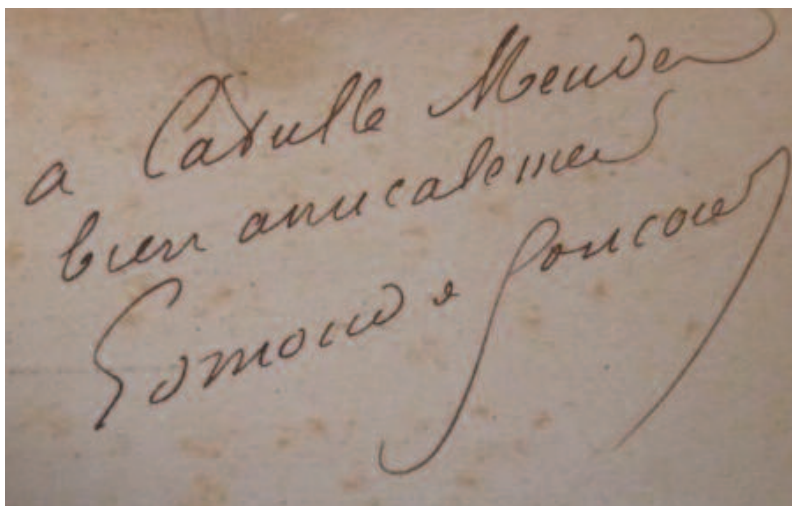 a Catulle Mendès
bien amicalement
Edmond de Goncourt